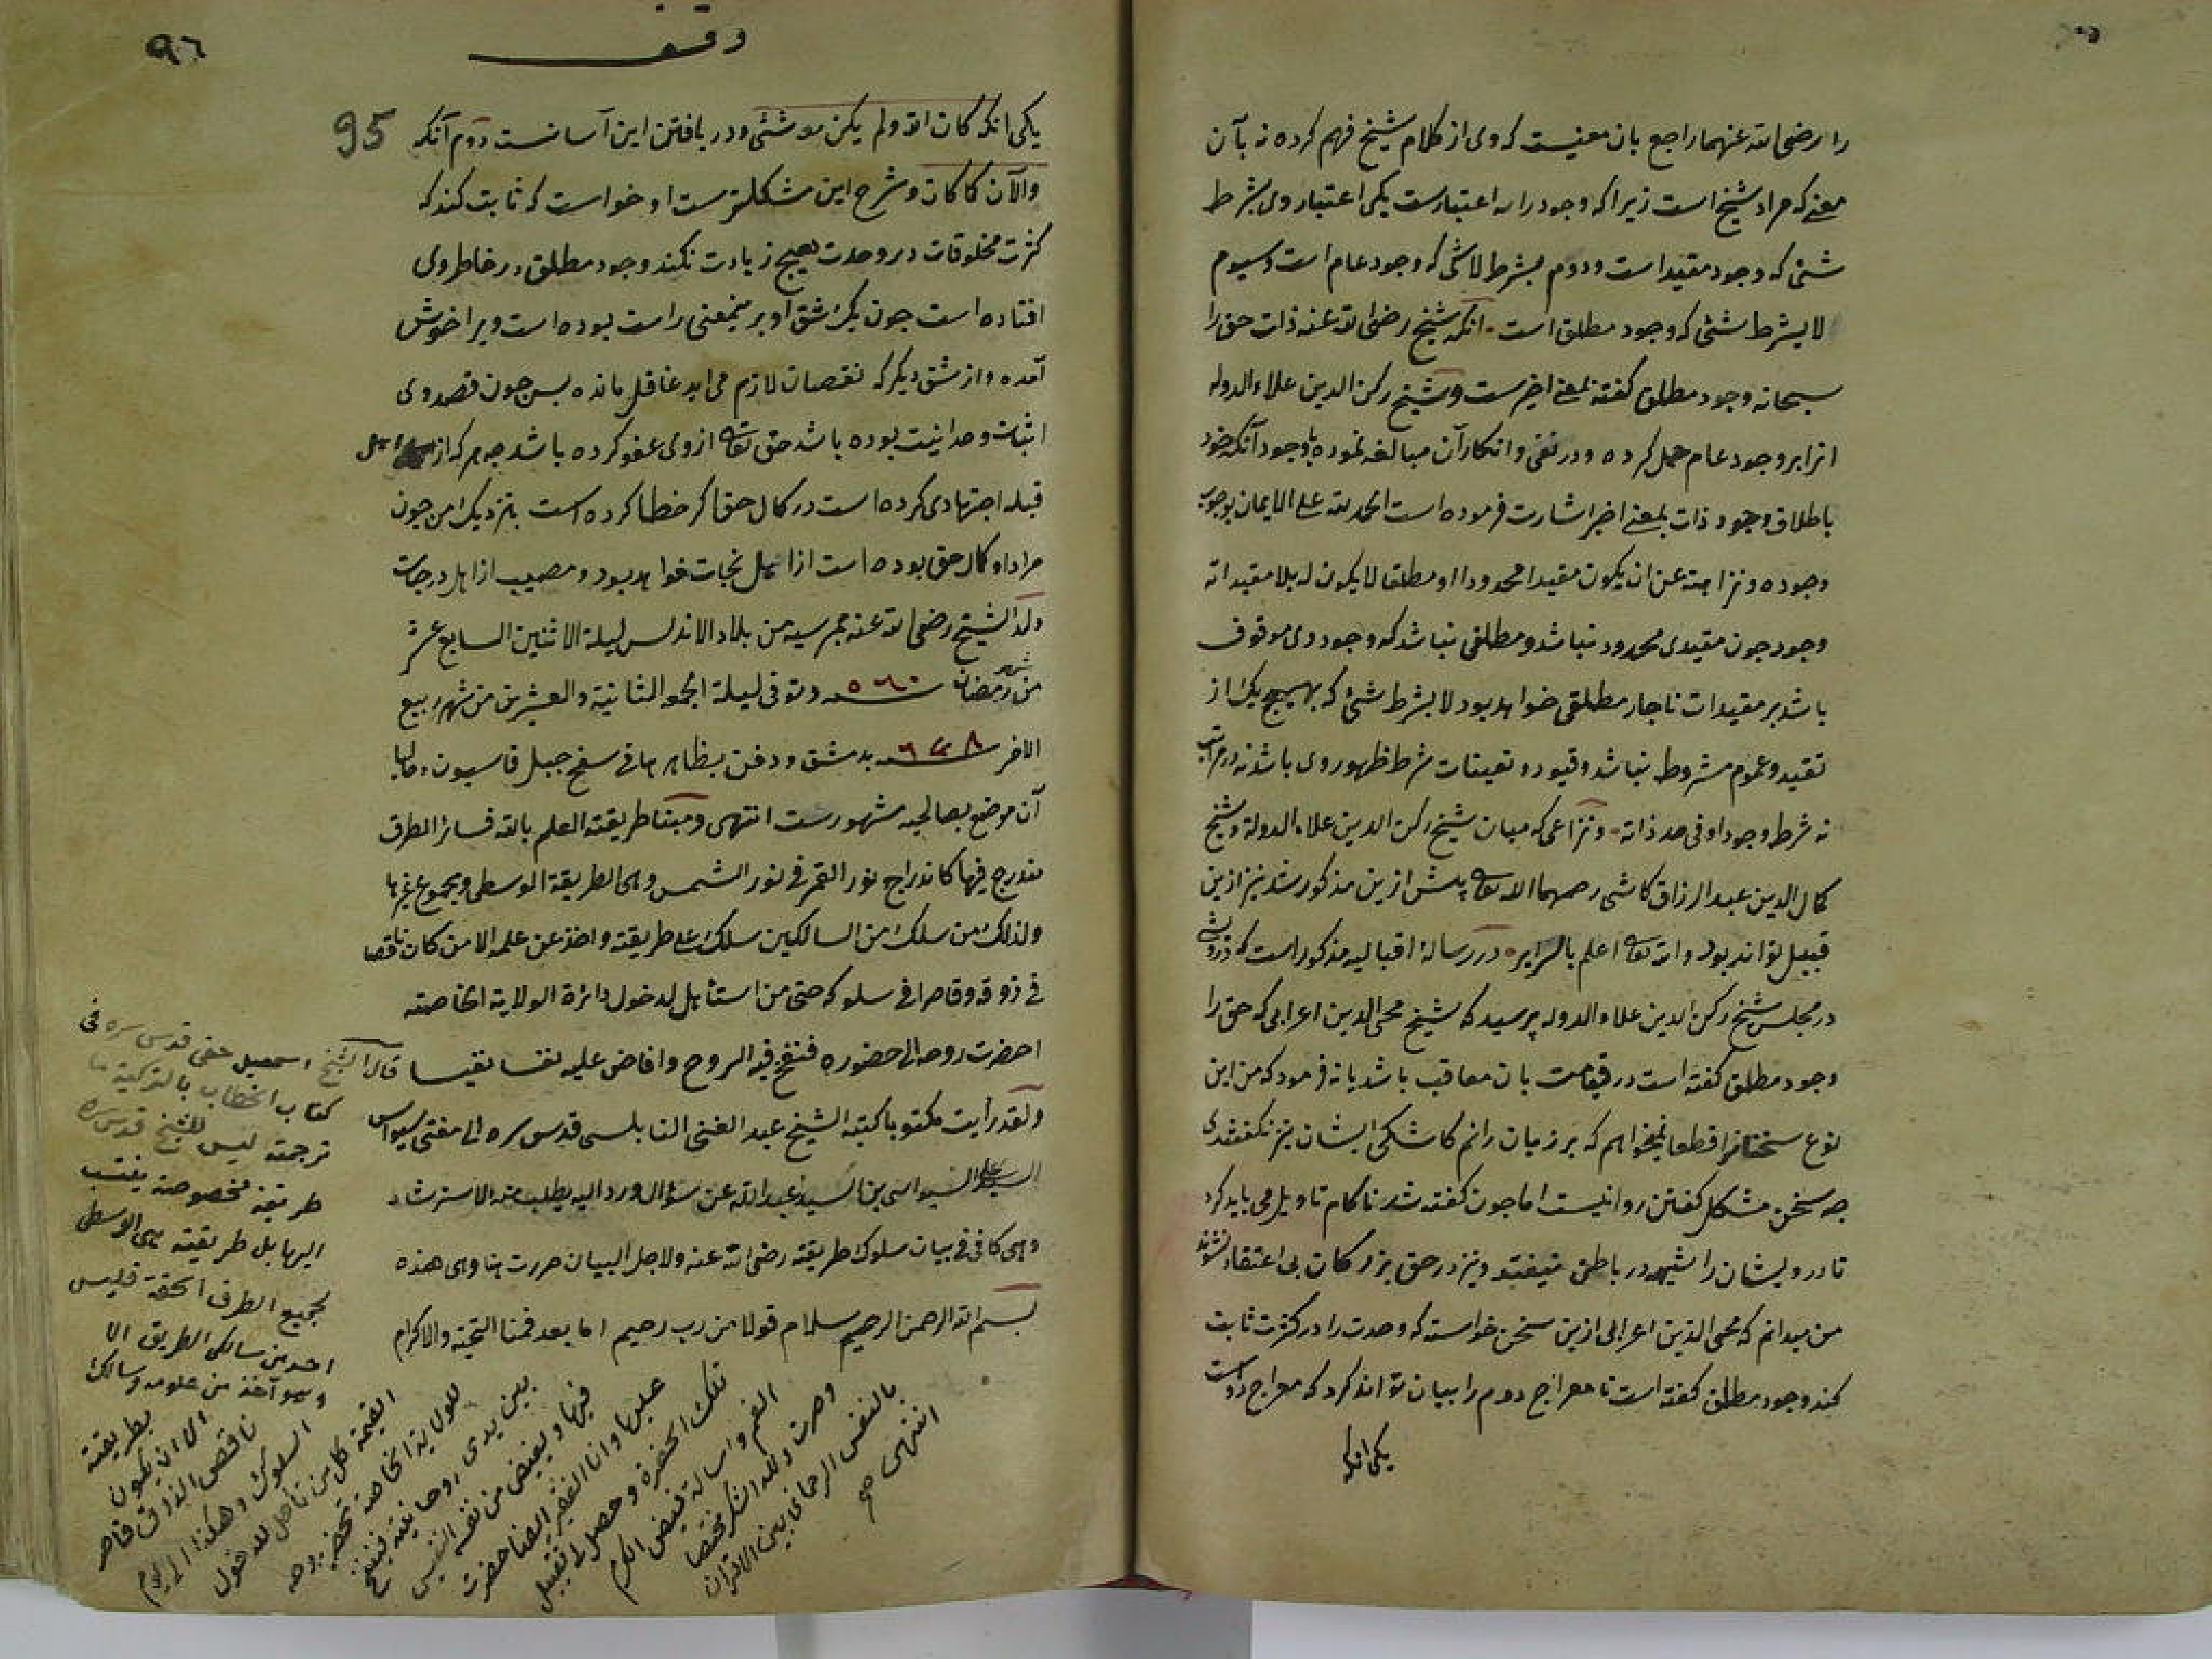 را رضی الله عنهما راجع بان معنیست که وی از کلام شیخ فهم کرده نه بآن
معنی که مراد شیخ است زیرا که وجود را سه اعتبارست یکی اعتبار وی بشرط
شئ که وجود مقید است ودوم بشرط لا شئ که وجود عام است وسیوم
لا بشرط شئ که وجود مطلق است انکه شیخ رضی الله عنه ذات حق را
سبحانه وجود مطلق کفته بمعنی اخیرست وشیخ رکن الدین علاء الدوله
انرا بر وجود عام حمل کرده ودر نفی وانکار آن مبالغه نموده با وجود آنکه خود
باطلاق وجود ذات بمعنی اخیر اشارت فرموده است الحمد لله علی الایمان بوجوب
وجوده ونزاهته عن ان یکون مقیدا محدودا او مطلقا لا یکون له بلا مقیداته
وجود جون مقیدی محدود نباشد ومطلقی نباشد که وجود وی موقوف
باشد بر مقیدات ناجار مطلقی خواهد بود لا بشرط شئ که بهیچ یک از
تقید وعموم مشروط نباشد وقیود وتعینات شرط ظهور وی باشد در مراتب
نه شرط وجود او فی حد ذاته ونزاعی که میان شیخ رکن الدین علاء الدولة وشیخ
کمال الدین عبد الرزاق کاشی رحمهما الله تعالی پیش ازین مذکور شد نیز ازین
قبیل تواند بود والله تعالی اعلم بالسرایر در رسالۀ اقبالیه مذکور است که درویشی
در مجلس شیخ رکن الدین علاء الدوله پرسید که شیخ محی الدین اعرابی که حق را
وجود مطلق کفته است در قیامت بان معاقب باشد یا نه فرمود که من این
نوع سخنانرا قطعا نمیخواهم که بر زبان رانم کاشکی ایشان نیز نکفتندی
جه سخن مشکل کفتن روا نیست اما جون کفته شد ناکام تاویل می باید کرد
تا درویشان را شبهه در باطن نیفتد ونیز در حق بزرکان بی اعتقاد نشوند
من میدانم که محی الدین اعرابی ازین سخن خواسته که وحدت را در کثرت ثابت
کند وجود مطلق کفته است تا معراج دوم را بیان تواند کرد که معراج دواست
یکی انکه
وقف
٩٦
95
یکی انکه کان الله ولم یکن معه شئی ودریافتن این آسانست دوم آنکه
والآن کما کان وشرح این مشکلترست او خواست که ثابت کند که
کثرت مخلوقات در وحدت هیچ زیادت نکند وجود مطلق در خاطر وی
افتاده است جون یک شق او برینمعنی راست بوده است ویرا خوش
آمده واز شق دیکر که نقصان لازم می اید غافل مانده پس جون قصد وی
اثبات وحدانیت بوده باشد حق تعالی از وی عفو کرده باشد جه هر که از اهل
قبله اجتهادی کرده است در کمال حق اکر خطا کرده است بنزدیک من جون
مراد او کمال حق بوده است از اهل نجات خواهد بود ومصیب از اهل درجات
ولد الشیخ رضی الله عنه بمرسیه من بلاد الاندلس لیلة الاثنین السابع عشرة
من شهر رمضان سنه ٥٦٠ وتوفی لیلة الجمعه الثانیة والعشرین من شهر ربیع
الاخر سنه ٦٣٨ بدمشق ودفن بظاهرها فی سفح جبل قاسیون وحالیا
آن موضع بصالحیه مشهورست انتهی ومبنا طریقته العلم بالله فسائر الطرق
مندرج فیها کاندراج نور القمر فی نور الشمس وهی الطریقة الوسطی ومجموع غیرها
ولذلک من سلک من السالکین سلک علی طریقته واخذ عن علمه الا من کان ناقصا
فی ذوقه وقاصرا فی سلوکه حتی من استأهل لدخول دائرة الولایة الخاصة
احضرت روحه الی حضوره فنفخ فیه الروح وافاض علیه نفسا نفیسا
ولقد رأیت مکتوبا کتبه الشیخ عبد الغنی النابلسی قدس سره الی مفتی سیواس
السید علی السیواسی بن السید عبد الله عن سؤال ورد الیه یطلب منه الاسترشاد
وهی کافی فی بیان سلوک طریقته رضی الله عنه ولاجل البیان حررت هنا وهی هذه
بسم الله الرحمن الرحیم سلام قولا من رب رحیم اما بعد فمنا التحیة والاکرام
قال الشیخ اسمعیل حقی قدس سره فی
کتاب الخطاب بالترکیة ما
ترجمته لیس للشیخ قدس سره
طریقة مخصوصة ینتسب
الیها بل طریقته هی الوسطی
لجمیع الطرق الحقة فلیس
احد من سالکی الطریق الا
وهو آخذ من علومه وسالک
بطریقته
الا ان یکون
ناقص الذوق قاصر
السلوک وهکذا الی یوم
القیمة کل من تأهل للدخول
للولایة الخاصة تحضر روحه
بین یدی روحانیته فینفخ
فیها ویفیض من نفسه النفیس
علیها وانا الفقیر ایضا حضرت
تلک الحضرة وحصل لی تقبیل
الفم واسالة فیض الکرم
وصرت ولله الشکر مختصا
بالنفس الرحمانی بین الاقران
انتهی صح